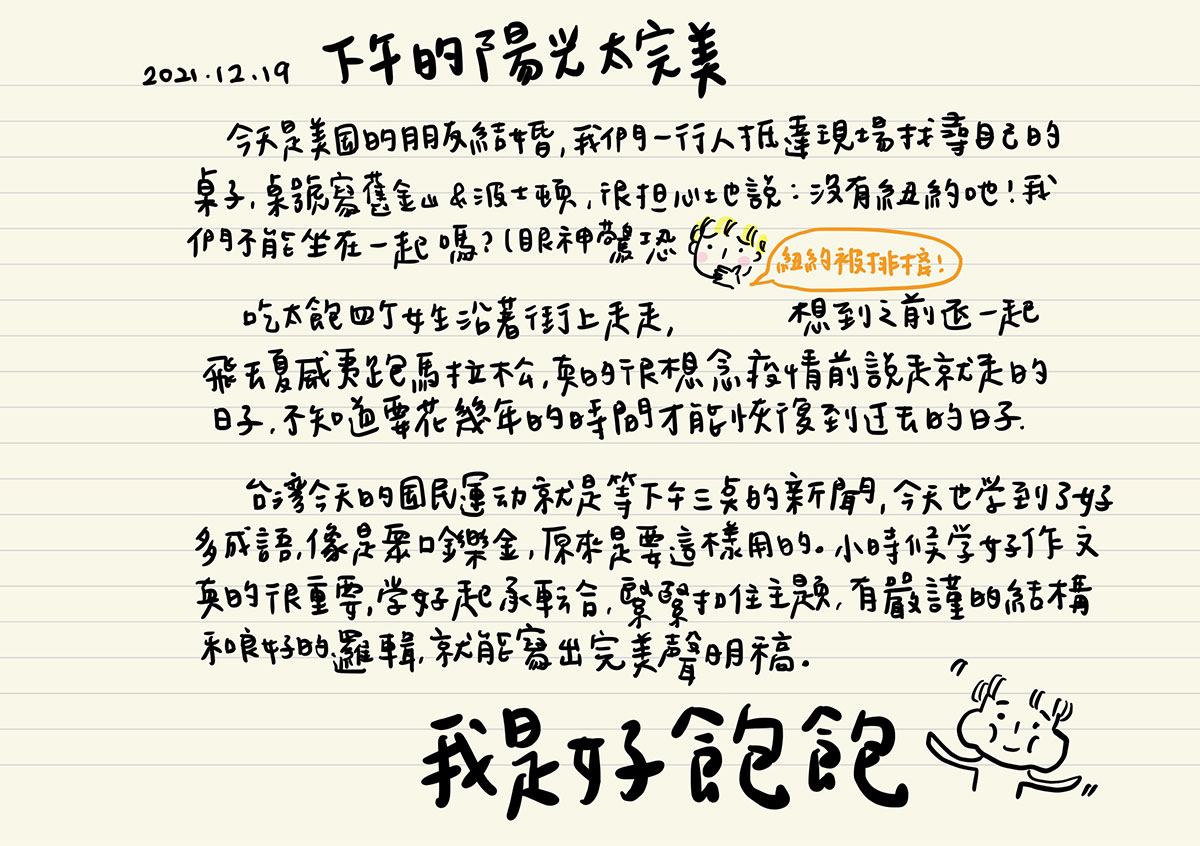 2021.12.19 下午的陽光太完美
今天是美国的朋友結婚,我們一行人抵達現場找尋自己的
桌子,桌號寫舊金山&波士頓,很担心地說:沒有紐約吔!我
們不能坐在一起嗎?(眼神驚恐
紐約被排擠!
吃太飽四个女生沿著街上走走, 想到之前还一起
飛去夏威夷跑馬拉松,真的很想念疫情前說走就走的
日子,不知道要花幾年的時間才能恢復到过去的日子.
台灣今天的国民運动就是等下午三点的新聞,今天也学到了好
多成語,像是眾口鑠金,原來是要這樣用的。小時候学好作文
真的很重要,学好起承転合,緊緊扣住主題,有嚴謹的結構
和良好的邏輯,就能寫出完美聲明稿。
我是好飽飽